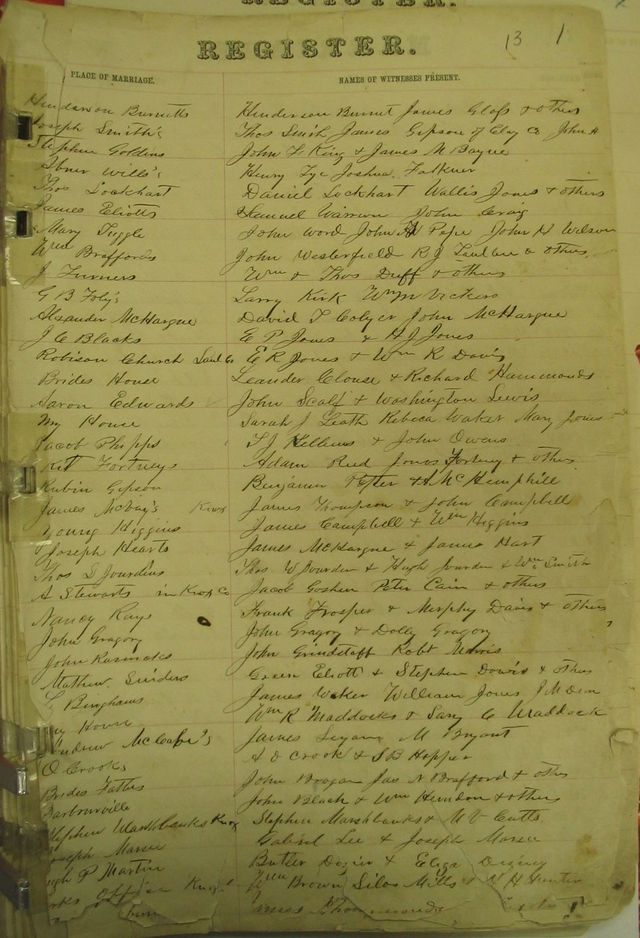 REGISTER.
13 1
REGISTER.
PLACE OF MARRIAGE. NAMES OF WITNESSES PRESENT.
Henderson Burnetts Henderson Burnet James Glass & others
Joseph Smith's Thos Smith James Gipson of Clay Co John H
Stephen Goldins John F King & James M Bayne
Abner Wills's Henry Lye Joshua Falkner
Thos Lockhart Daniel Lockhart Wallis Jones & others
James Eliotts Samuel Warren John Craig
Mary Tuggle John Word John Pope John H Wilson
Wm Braffords John Westerfield R J & others
J Turners Wm & Thos Duff & others
G B Foly's Larry Kirk Wm Vickers
Alexander McHargue David T Colyer John McHargue
J C Blacks E P Jones & H J Jones
Robinson Church Laul Co E R Jones & Wm R Davis
Brides House Leander Clouse & Richard Hammonds
Aaron Edwards John Scalf & Washington Lewis
My House Sarah J Leath Rebeca Waker Mary Jones
Jacob Phipps T J Kelliems & John Owens
Kit Fortneys Adam Reed Jones Fortney & others
Rubin Gipson Benjamin & McHemphill
James McVay's Knox James Thompson & John Campbell
Young Higgins James Campbell & Wm Higgins
Joseph Hearts James McHargue & James Hart
Thos S Jourdins Thos W Jourden & Hugh Jourden & Wm Smith
A Stewarts in Knox Co Jacob Goshen Peter Cain & others
Nancy Rays Frank Prosper & Murphy Davis & others
John Gragory John Gragory & Dolly Gragory
John Grindstaff Robt
Mathew Sniders Green Eliott & Stephen & others
Binghams James Waker William Jones J M
House Wm R Maddocks & Sary C Maddock
McCafee's James M Bryant
O Crooks A D Crook & S B Hopper
Brides Fathers John Jas N Brafford & others
Barbourville John Black & Wm Herndon & others
Stephen Marshbanks Knox Stephen Marshbanks & M V Cutts
Joseph Maree Gabriel Lee & Joseph Maree
P Martin Butler Dozier & Eliza Deziney
office Knox Wm Brown Silas Mills & W H Hunter